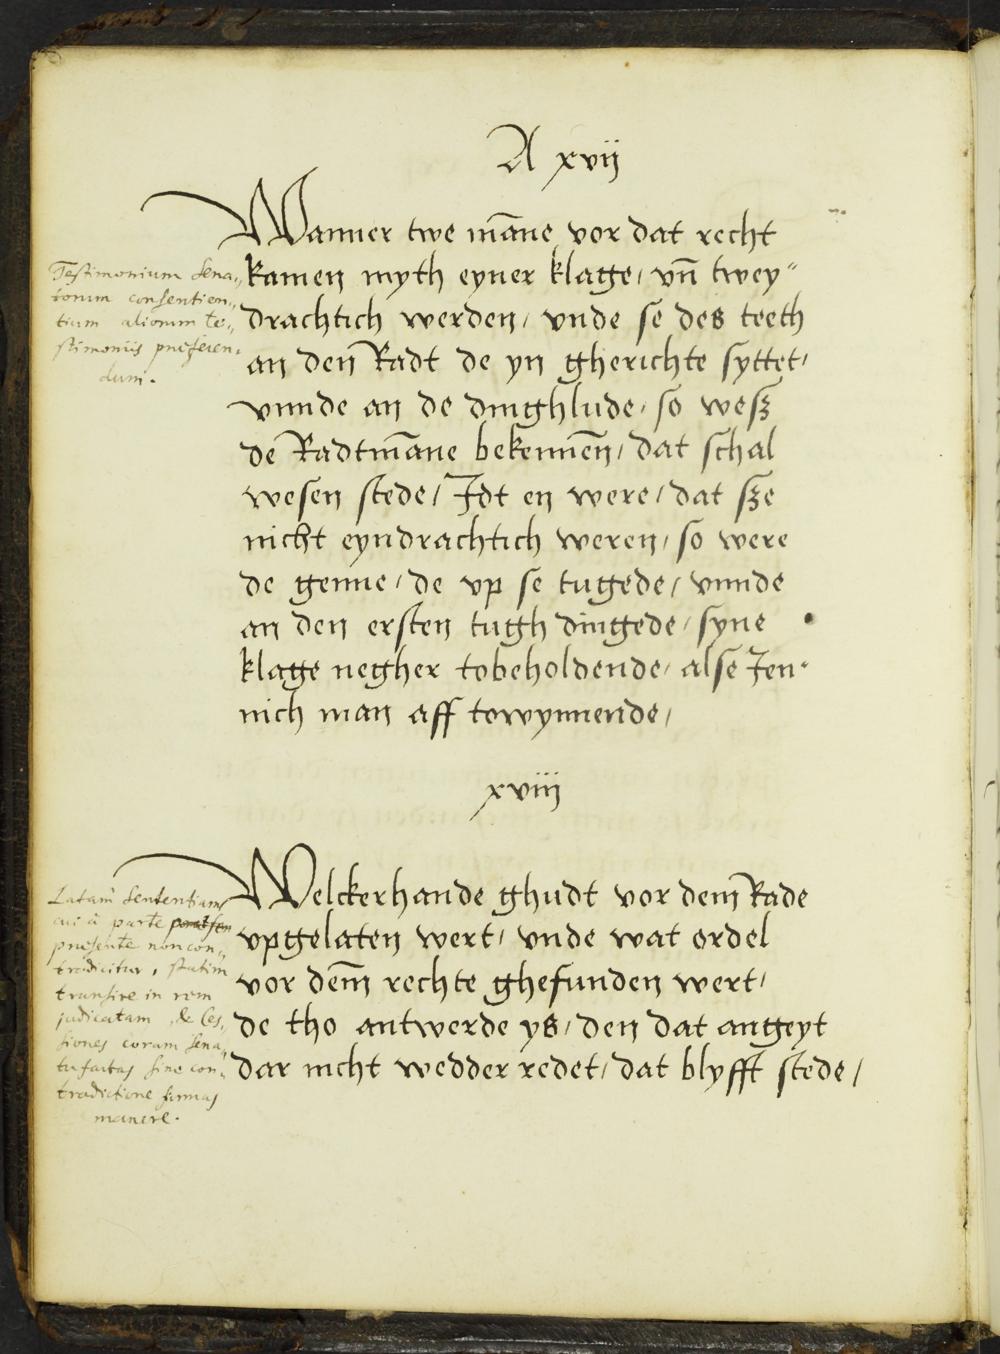 A xvij
Wanner twe māne vor dat recht
kamen myth eyner klage, vn̄ twey"
drachtich werden, vnde se des teeth
an den Radt de yn gherichte syttet,
vnnde an de dinghlude, so wesz
de Radtmāne bekennen̄, dat schal
wesen stede, Jdt en were, dat sze
nicht eyndrachtich weren, so were
de genne, de vp se tugede, vnnde
an den ersten tugh dingede, syne
klage negher tobeholdende, alse Jen-
nich man aff towynnende,
Testimonium Sena„
torum consentien„
tium aliorum te„
stimoniis præferen-
dum.
xviij
Welckerhande ghudt vor dem Rade
vpgelaten wert, vnde wat ordel
vor dem̄ rechte ghefunden wert,
de tho antwerde ys, den dat angeyt
dar nicht wedder redet, dat blyfft stede,
Latam Sententiam
cui à parte
præsente non con„
tradicitur, statim
transire in rem
judicatam, & Ces„
siones coram Sena„
tu factas sine con„
tradictione firmas
manere.